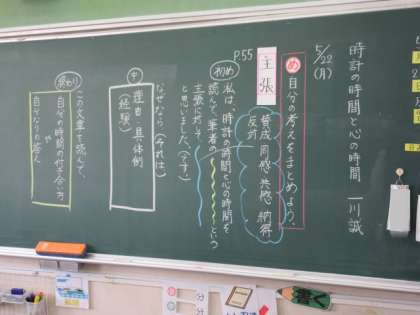 時計の時間と心の時間 一川誠
5/22(月)
め 自分の考えをまとめよう。
主張
賛成 同感 共感 納得
反対
P.55
初め
私は、「時計の時間と心の時間」を
読んで、筆者の という
主張に対して、
と思いました。(です)
なぜなら(それは)
中
理由・具体例
(経験)
この文章を読んで、
終わり
自分の時間の付き合い方
や
自分なりの答え
書く